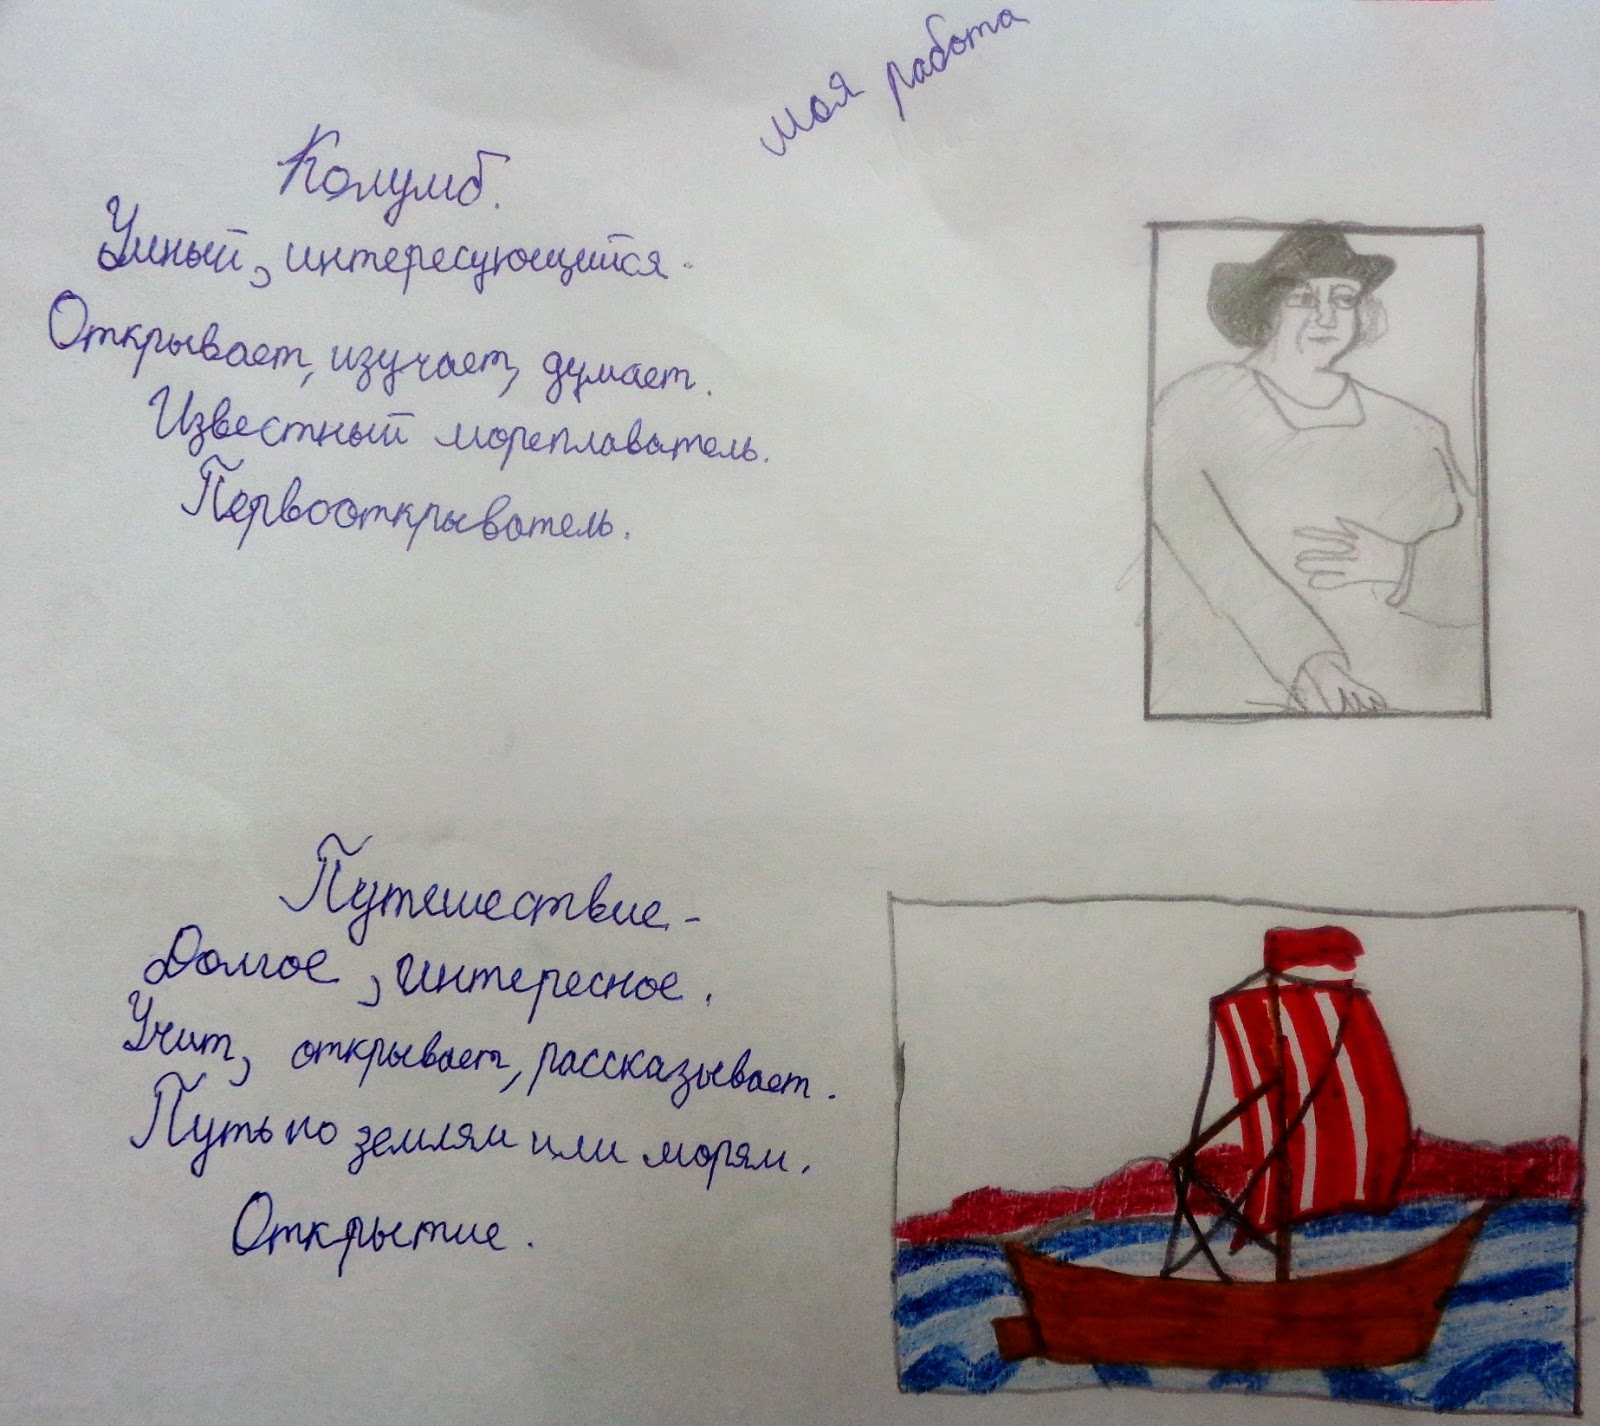 моя работа
Колумб.
Умный, интересующийся.
Открывает, изучает, думает.
Известный мореплаватель.
Первооткрыватель.
Путешествие-
Долгое, интересное.
Учит, открывает, рассказывает.
Путь по землям или морям.
Открытие.